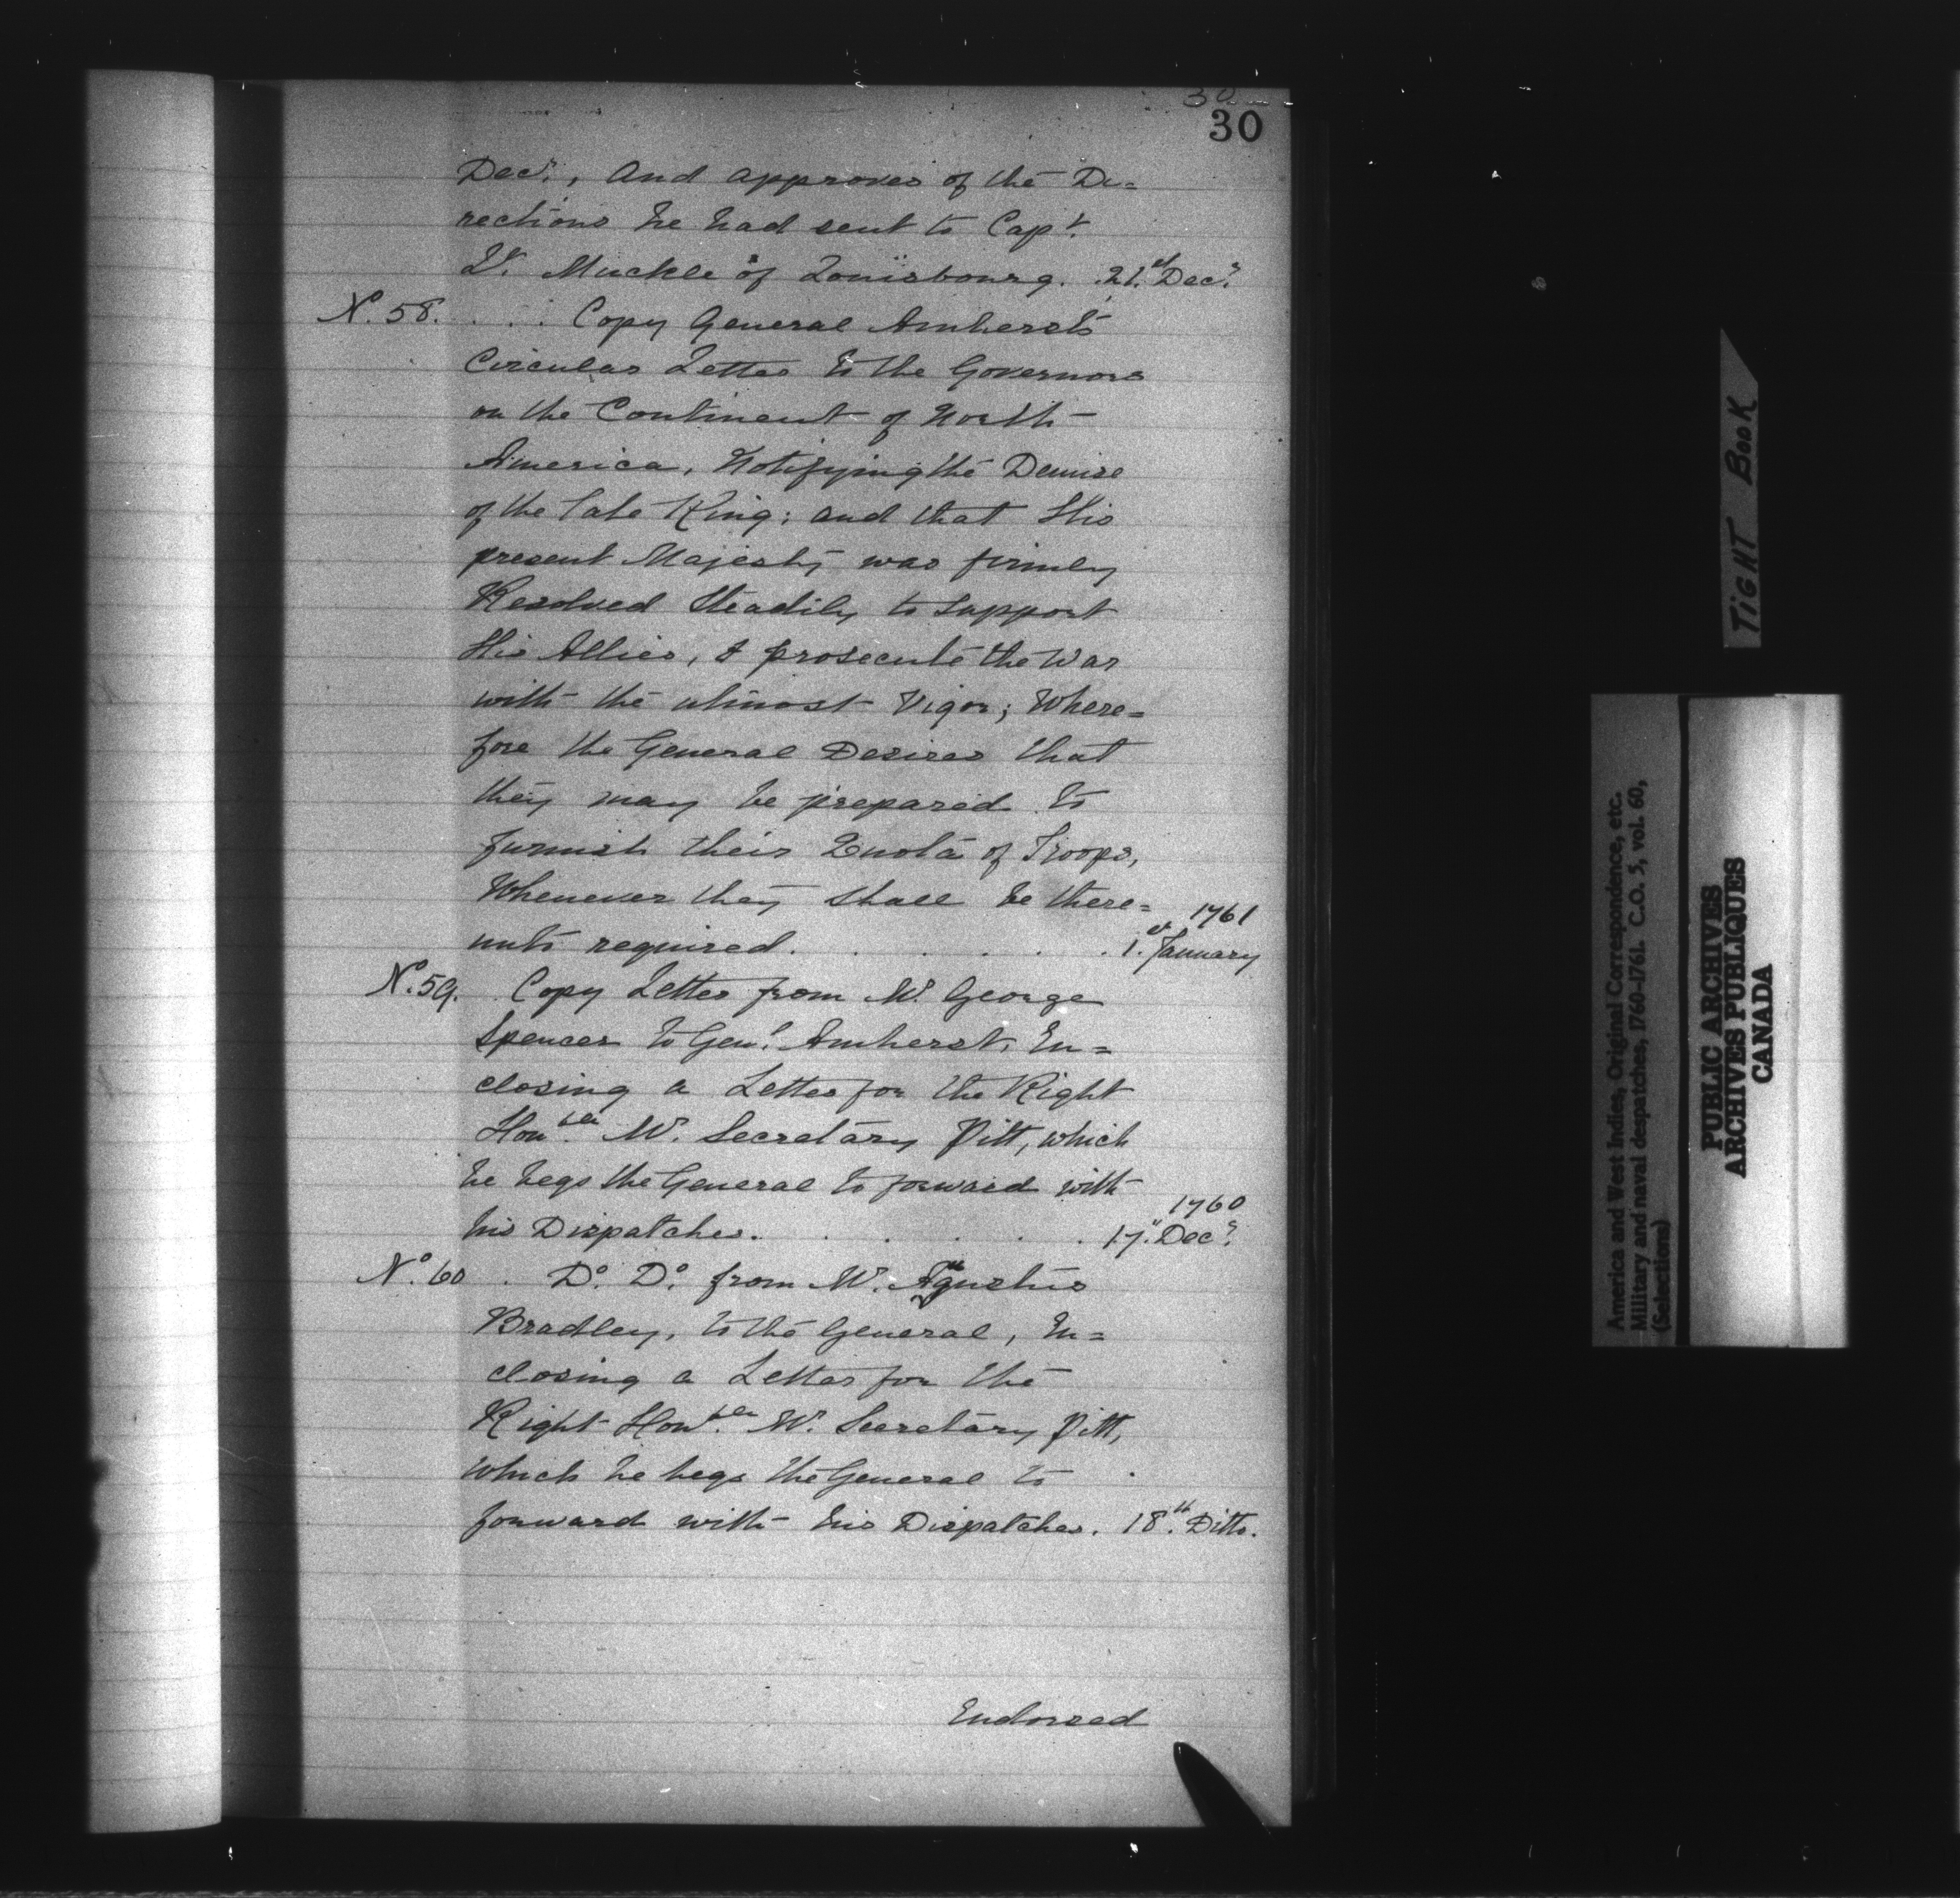 30
30
Decr., And approves of the Di=
rections he had sent to Capt.
Lt. Muckle of Louisbourg. . 21st Decr.
No. 58. . . . Copy General Amherst's
Circular Letter to the Governors
on the Continent of North
America, Notifying the Demise
of the late King; and that His
present Majesty was firmly
Resolved Steadily to Support
His Allies, & prosecute the War
with the utmost Vigor; Where=
fore the General Desires that
they may be prepared to
furnish their Quota of Troops,
Whenever they shall be there= 1761
unto required. . . . . . 1st January
No. 59. . Copy Letter from Mr. George
Spencer to Genl. Amherst, En=
closing a Letter for the Right
Honble. Mr. Secretary Pitt, which
he begs the General to forward with 1760
his Dispatches. . . . . . 17th Decr.
No. 60 . Do. Do. from Mr. Agustus
Bradley, to the General, En=
closing a Letter for the
Right Honble. Mr. Secretary Pitt,
which he begs the General to
forward with his Dispatches. 18th Ditto.
Endorsed
TIGHT BOOK
America and West Indies, Original Correspondence, etc.
Military and naval despatches, 1760-1761. C.O. 5, vol. 60,
(Selections)
PUBLIC ARCHIVES
ARCHIVES PUBLIQUES
CANADA